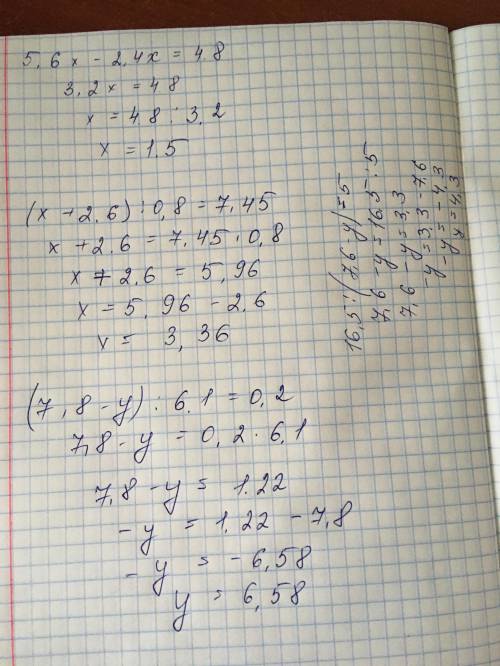 5,6x - 2,4x = 4.8
3,2x = 4.8
x = 4.8 : 3,2
x = 1.5
(x + 2.6) : 0,8 = 7,45
x + 2.6 = 7,45 · 0,8
x + 2.6 = 5,96
x = 5,96 - 2.6
x = 3,36
(7,8 - y) : 6.1 = 0,2
7,8 - y = 0,2 · 6,1
7,8 - y = 1.22
- y = 1.22 - 7,8
- y = - 6,58
y = 6,58
16,5 : (7,6 - y) = 5
7,6 - y = 16,5 : 5
7,6 - y = 3,3
-y = 3,3 - 7,6
-y = -4,3
y = 4,3